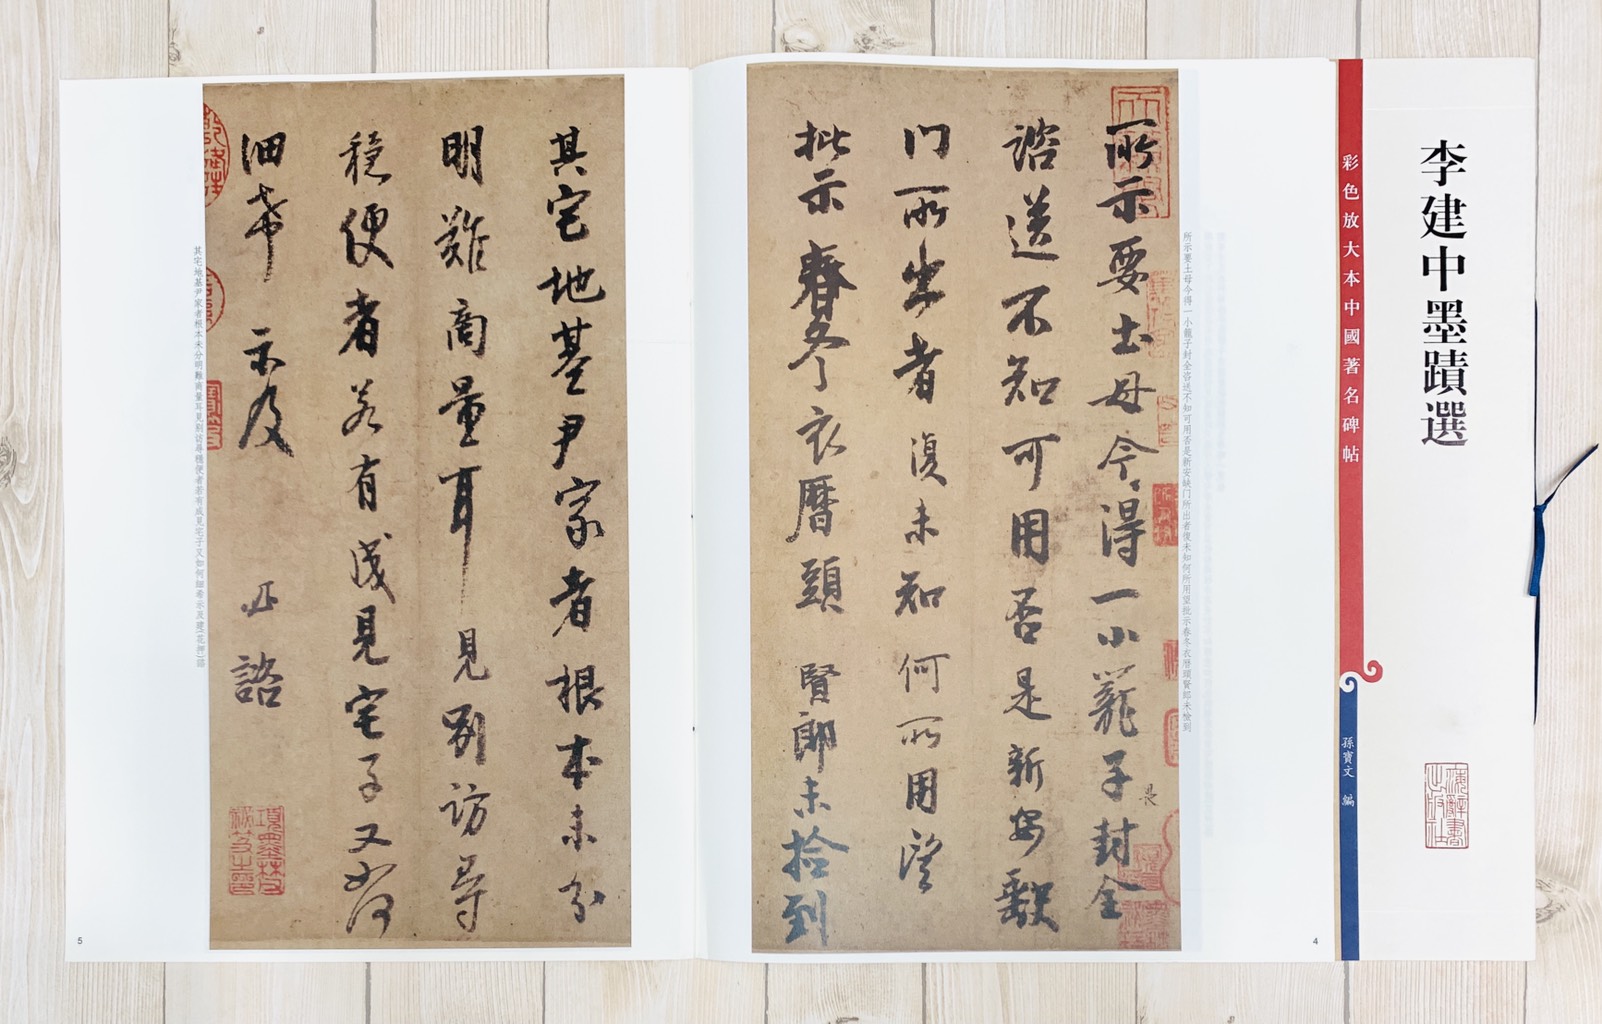 李建中墨蹟選
彩色放大本中國著名碑帖
孫寶文 編
海辭書出版社
所示要土母今得一小籠子封全
諮送不知可用否是新安缺
门所出者復未知何所用望
批示春冬衣曆頭 賢郎未捡到
所示要土母今得一小籠子封全咨送不知可用否是新安缺门所出者復未知何所用望批示春冬衣曆頭賢郎未撿到
4
其宅地基尹家者根本未分
明難商量耳見別訪尋
穩便者若有成見宅子又如何
細希 示及 諮
其宅地基尹家者根本未分明難商量耳見別訪尋穩便者若有成見宅子又如何細希示及建(花押)諮
5